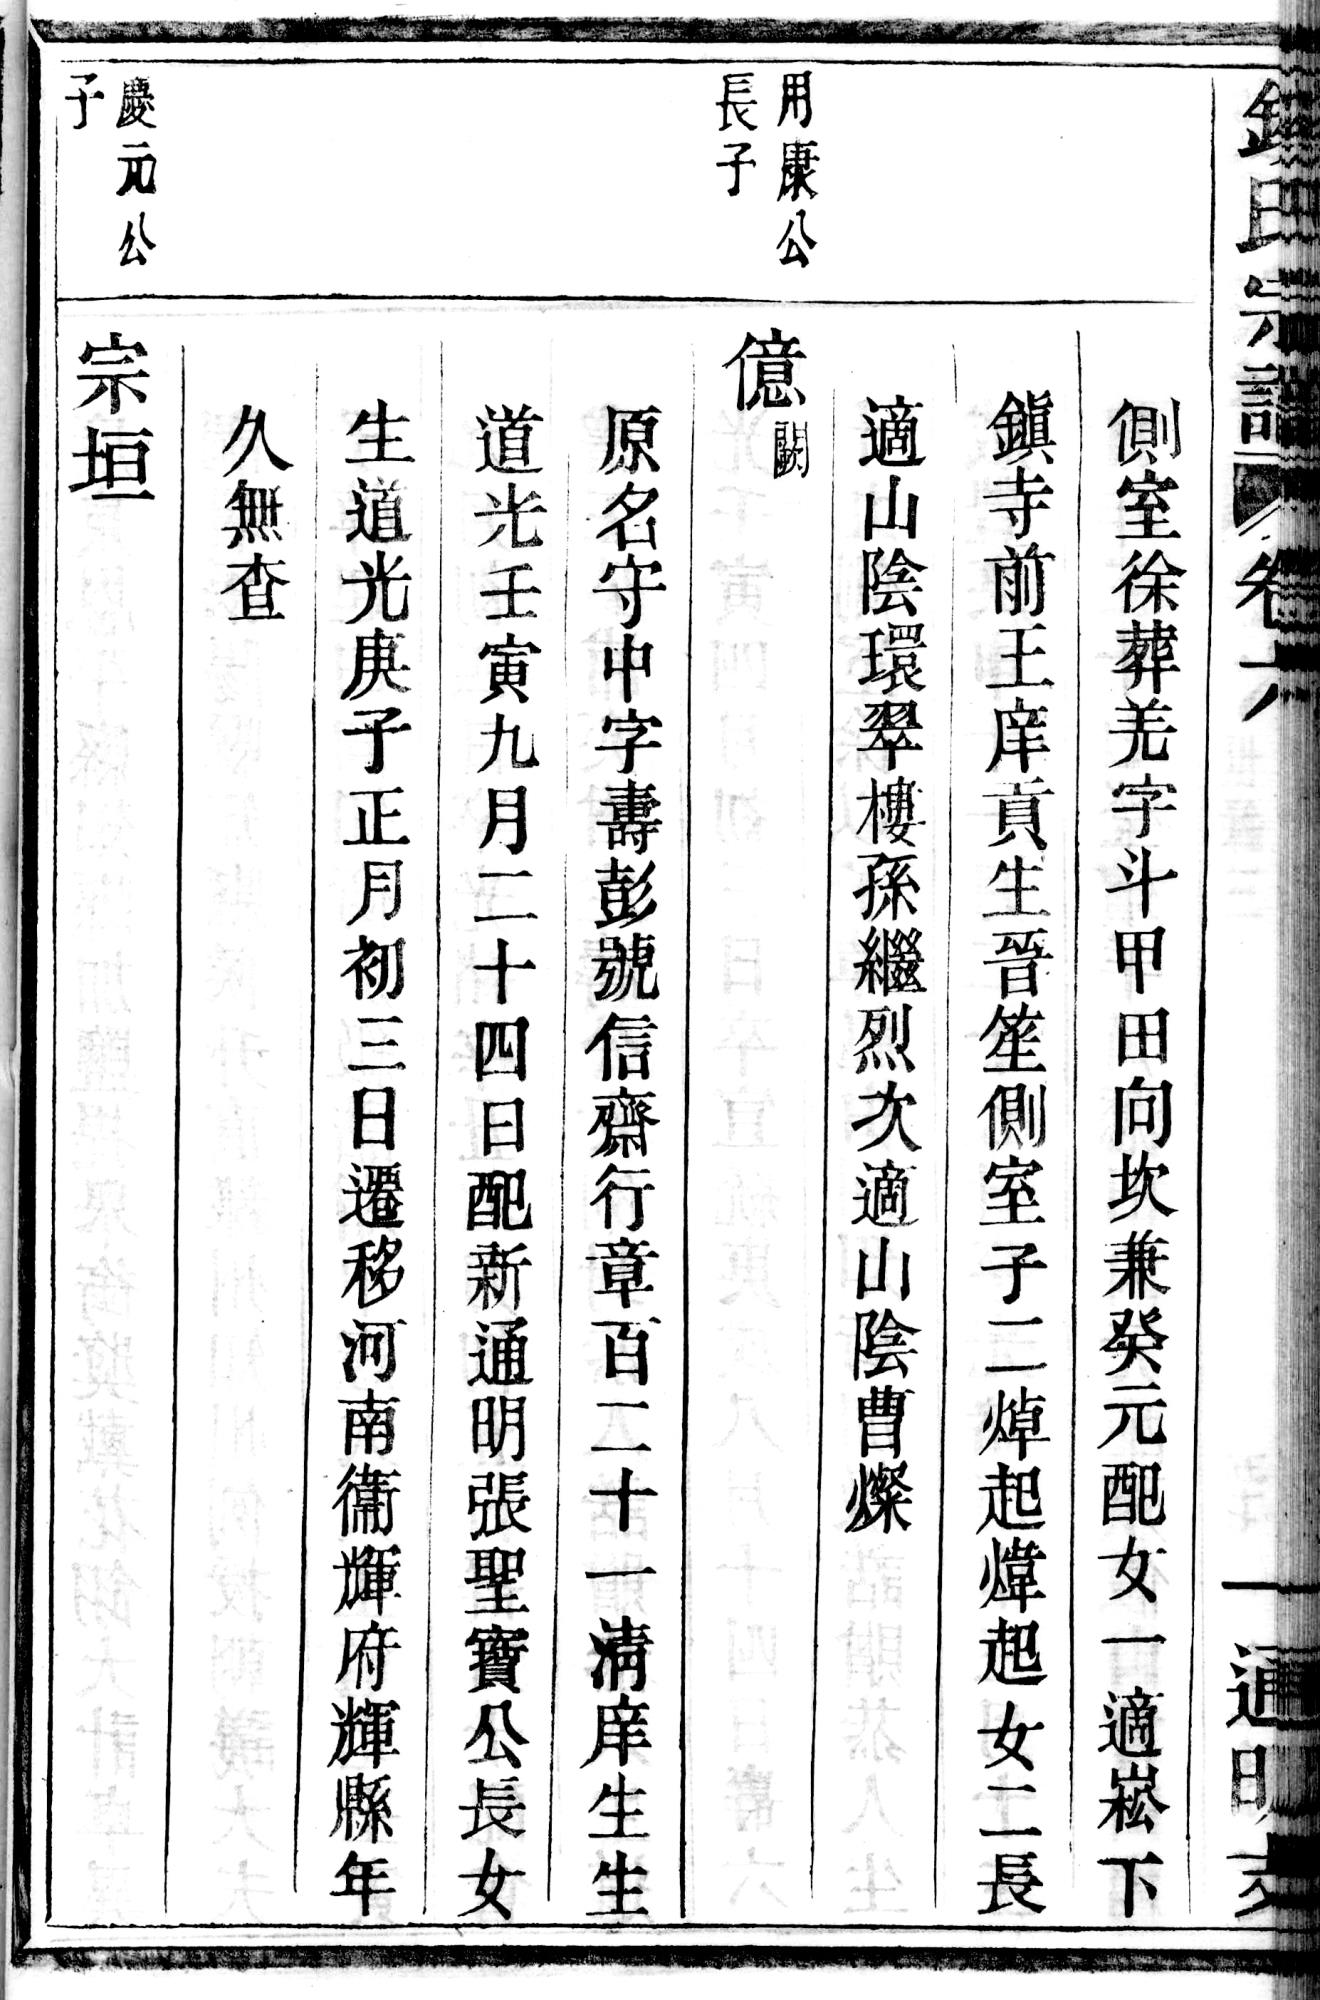 氏宗譜
卷六
一
通明支
側室徐葬羌字斗甲田向坎兼癸元配女一適崧下
鎭寺前王庠貢生晉笙側室子二焯起煒起女二長
適山陰環翠樓孫繼烈次適山陰曹燦
用康公
長子
億闕
原名守中字壽彭號信齋行章百二十一淸庠生生
道光壬寅九月二十四日配新通明張聖寶公長女
生道光庚子正月初三日遷移河南衞輝府輝縣年
久無查
慶元公
子
宗垣